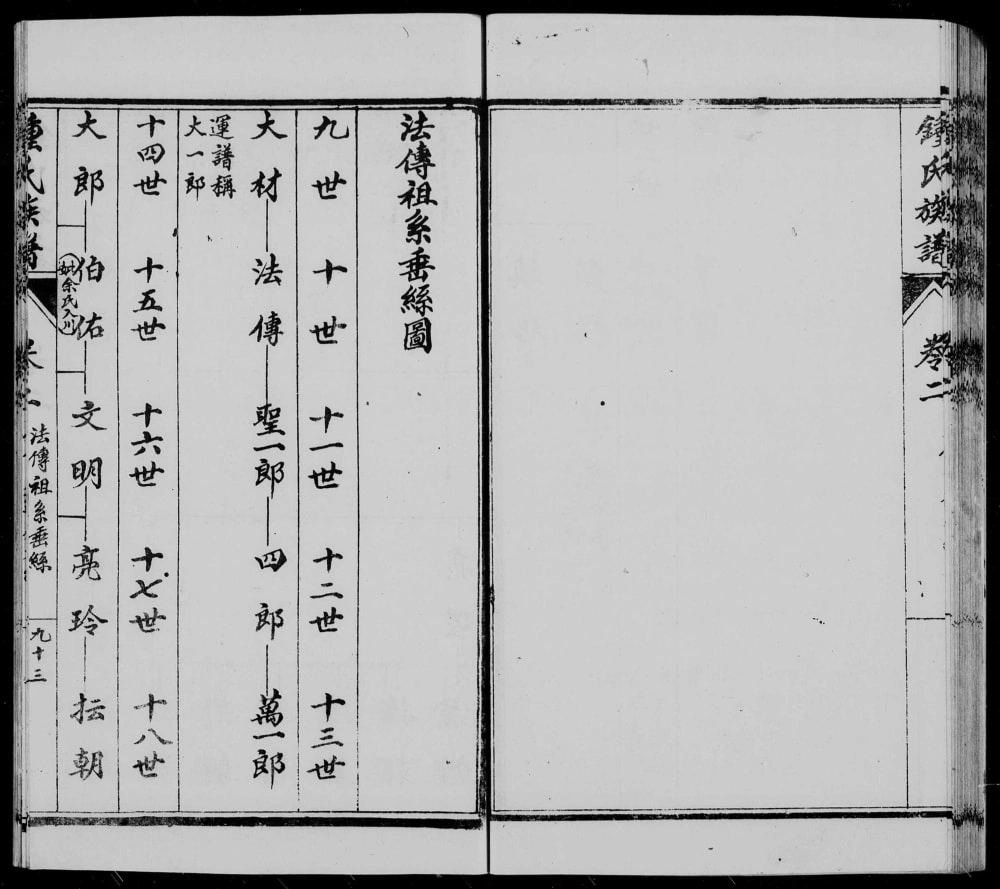 鍾氏族譜
卷二
法傳祖系垂絲圖
九世 十世 十一世 十二世 十三世
大材 法傳 聖一郎 四郎 萬一郎
運譜稱
大一郎
十四世 十五世 十六世 十七世 十八世
大郎 伯佑 文明 亮玲 抎朝
妣余氏入川
鍾氏族譜
卷二
法傳祖系垂絲
九十三